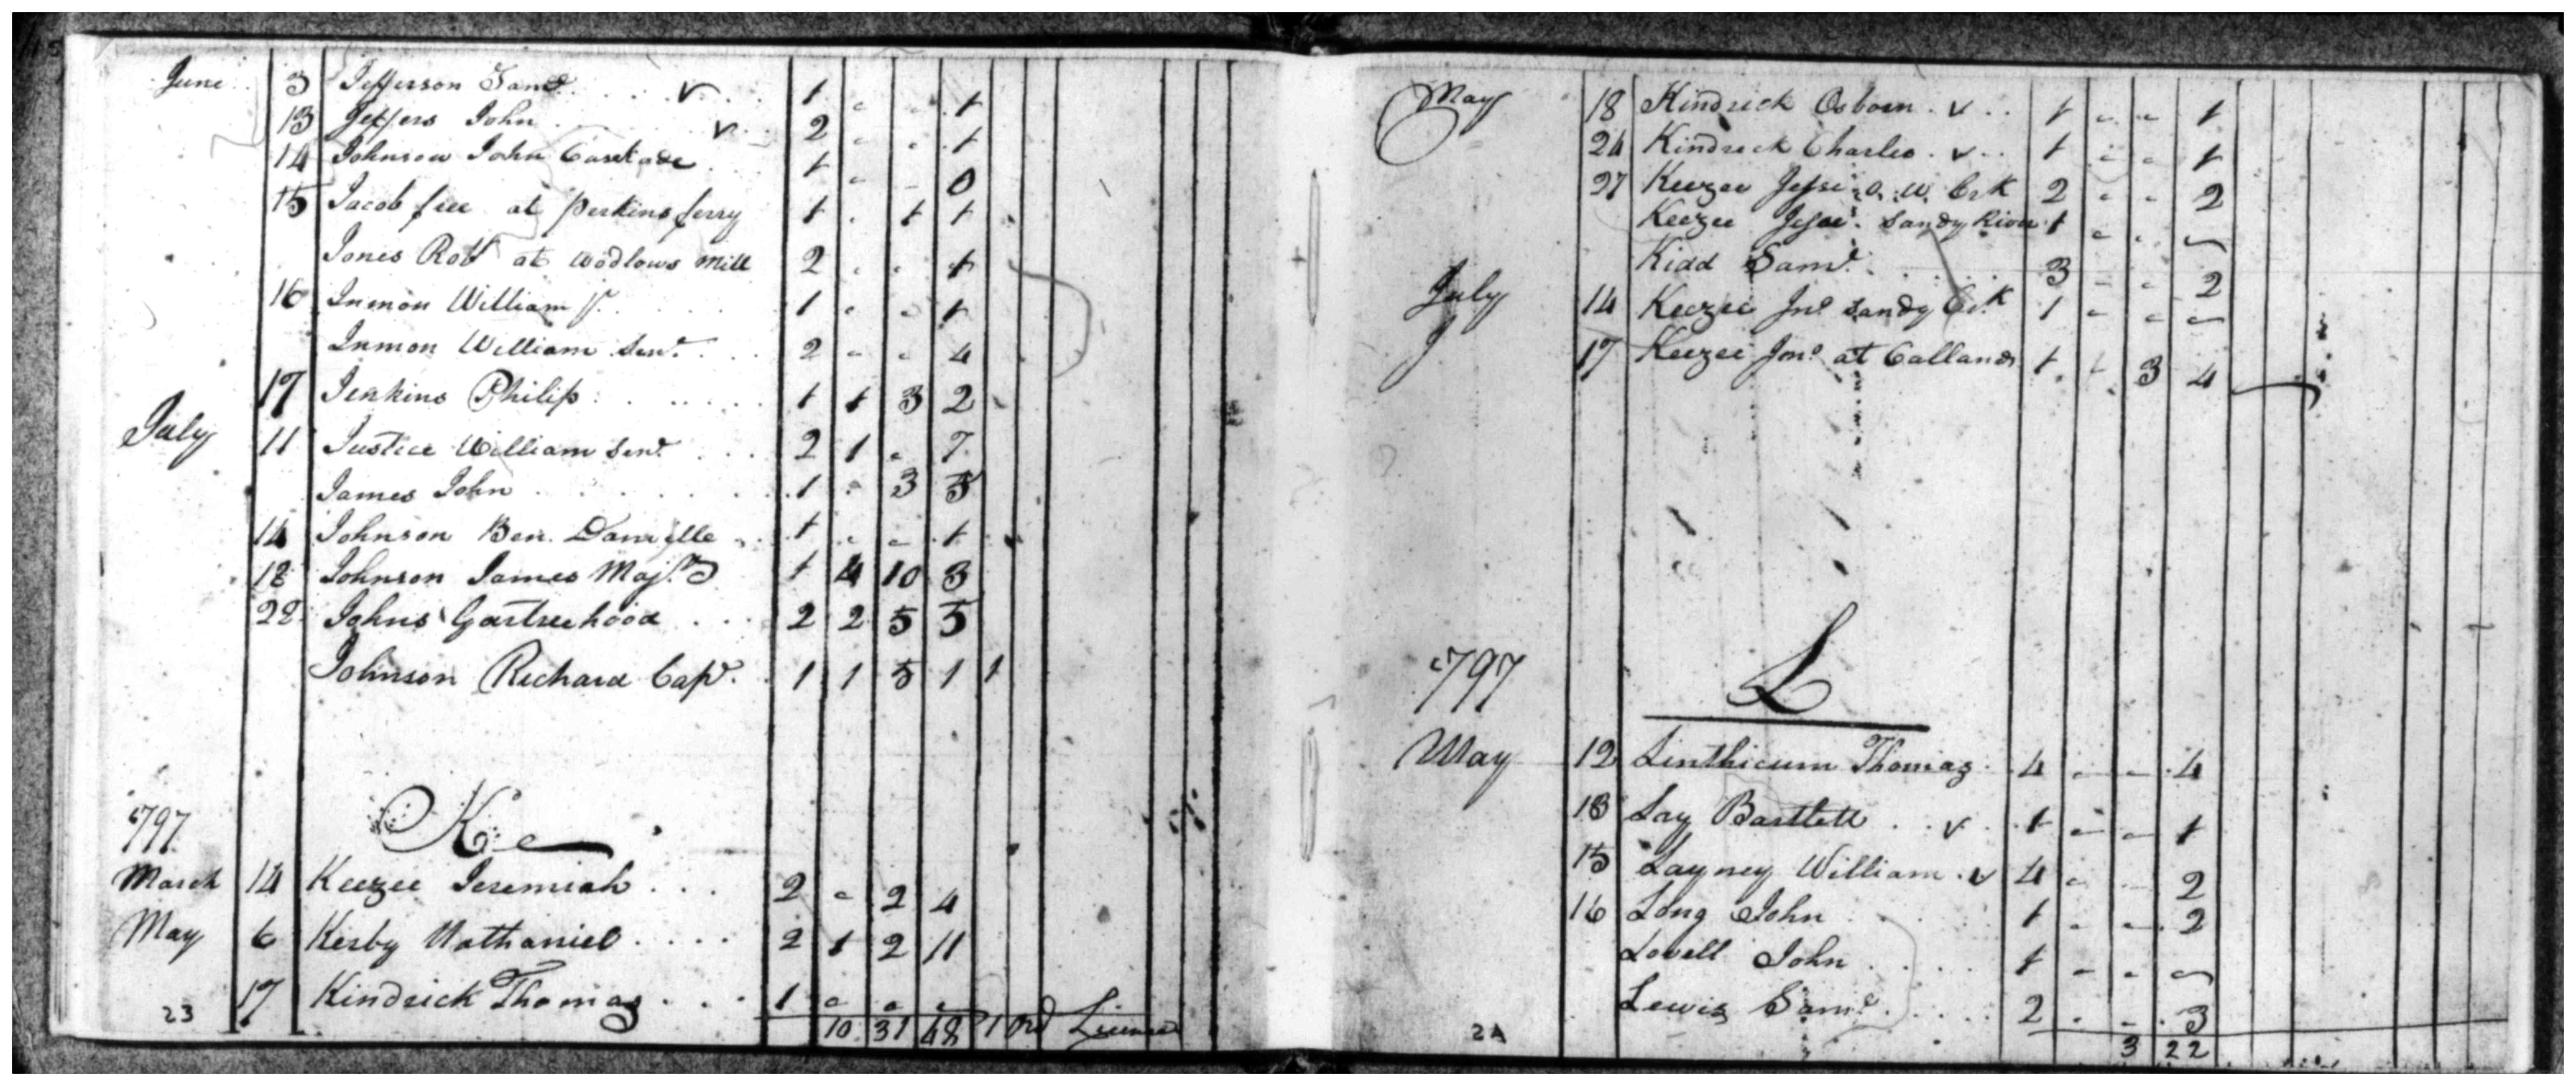 June 3 Jefferson Saml v 1 - - 1
13 Jeffers John v 2 - - 1
14 Johnson John 1 - - 0
15 Jacob free at Perkins ferry 1 . 1 1
Jones Robt at Wodlows Mill 2 - - 1
16 Inmon William Jr. 1 - - 1
Inmon William Senr. 2 - - 4
17 Jenkins Philip 1 1 3 2
July 11 Justice William Senr. 2 1 - 7
James John 1 - 3 5
14 Johnson Ben. Danville 1 - - 1
18 Johnson James Majr. 1 4 10 3
22 Johns 2 2 5 5
Johnson Richard Capt. 1 1 5 1 1
1797
K
March 14 Keezee Jeremiah 2 - 2 4
May 6 Kesby Nathaniel 2 1 2 11
17 Kindrick Thomas 1 - - -
23 10 31 48 1 Ord License
May 18 Kindrick Osborn v 1 - - 1
24 Kindrick Charles v 1 - - 1
27 Keezee Jesse O. W. Crk 2 - - 2
Keezee Jesse Sandy River 1 - - -
Kidd Saml. 3 - - 2
July 14 Keezee Jno. Sandy Crk 1 - - -
17 Keezee Jno. at Callands 1 1 3 4
1797
L
May 12 Linthicum Thomas 4 - - 4
13 Lay Bartlett v 1 - - 1
15 Layney William v 4 - - 2
16 Long John 1 - - 2
Lovell John 1 - - -
Lewis Saml. 2 - - 3
24 3 22